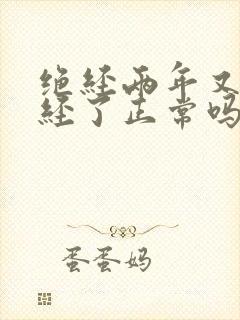 绝经两年又
经了正常吗
蛋蛋妈